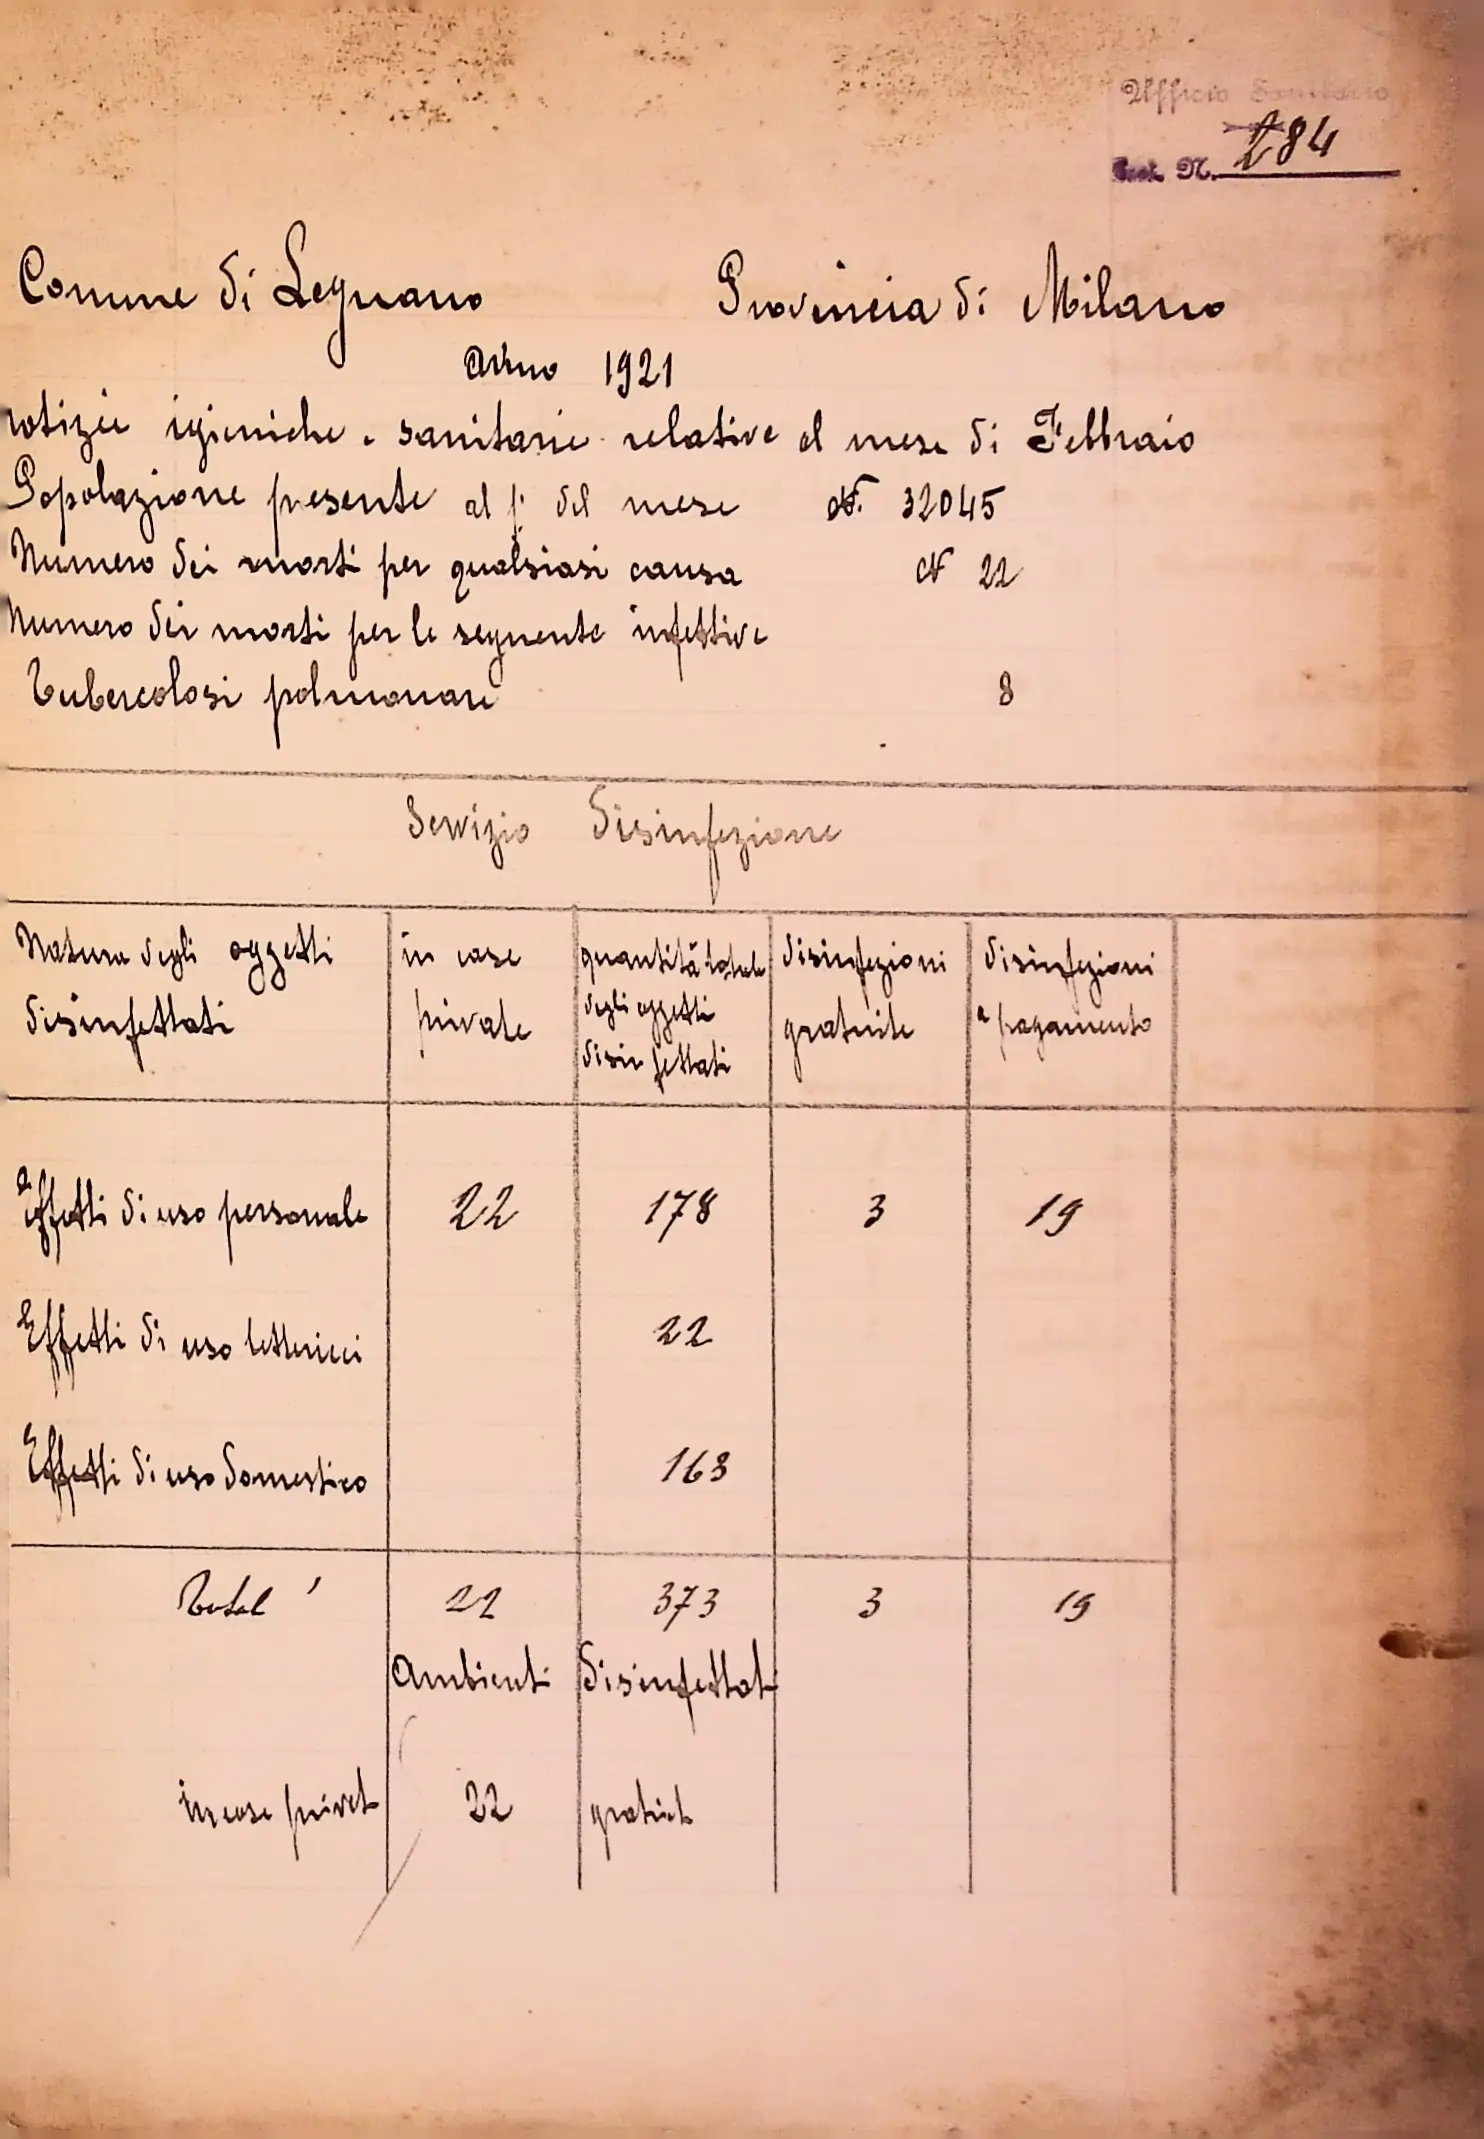 Ufficio Sanitario
Prot. N. 284
Comune di Legnano Provincia di Milano
Anno 1921
notizie igieniche - sanitarie relative al mese di Febbraio
Popolazione presente al 1° del mese N. 32045
Numero dei morti per qualsiasi causa N 22
Numero dei morti per le seguente infettive
Tubercolosi polmonare 8
Servizio disinfezione
Natura degli oggetti disinfettati
in case private
quantità totale degli oggetti disinfettati
disinfezioni gratuite
disinfezioni a pagamento
Effetti di uso personale 22 178 3 19
Effetti di uso letterecci 22
Effetti di uso domestico 163
Total 22 373 3 19
Ambienti disinfettati
in case privat 22 gratuit